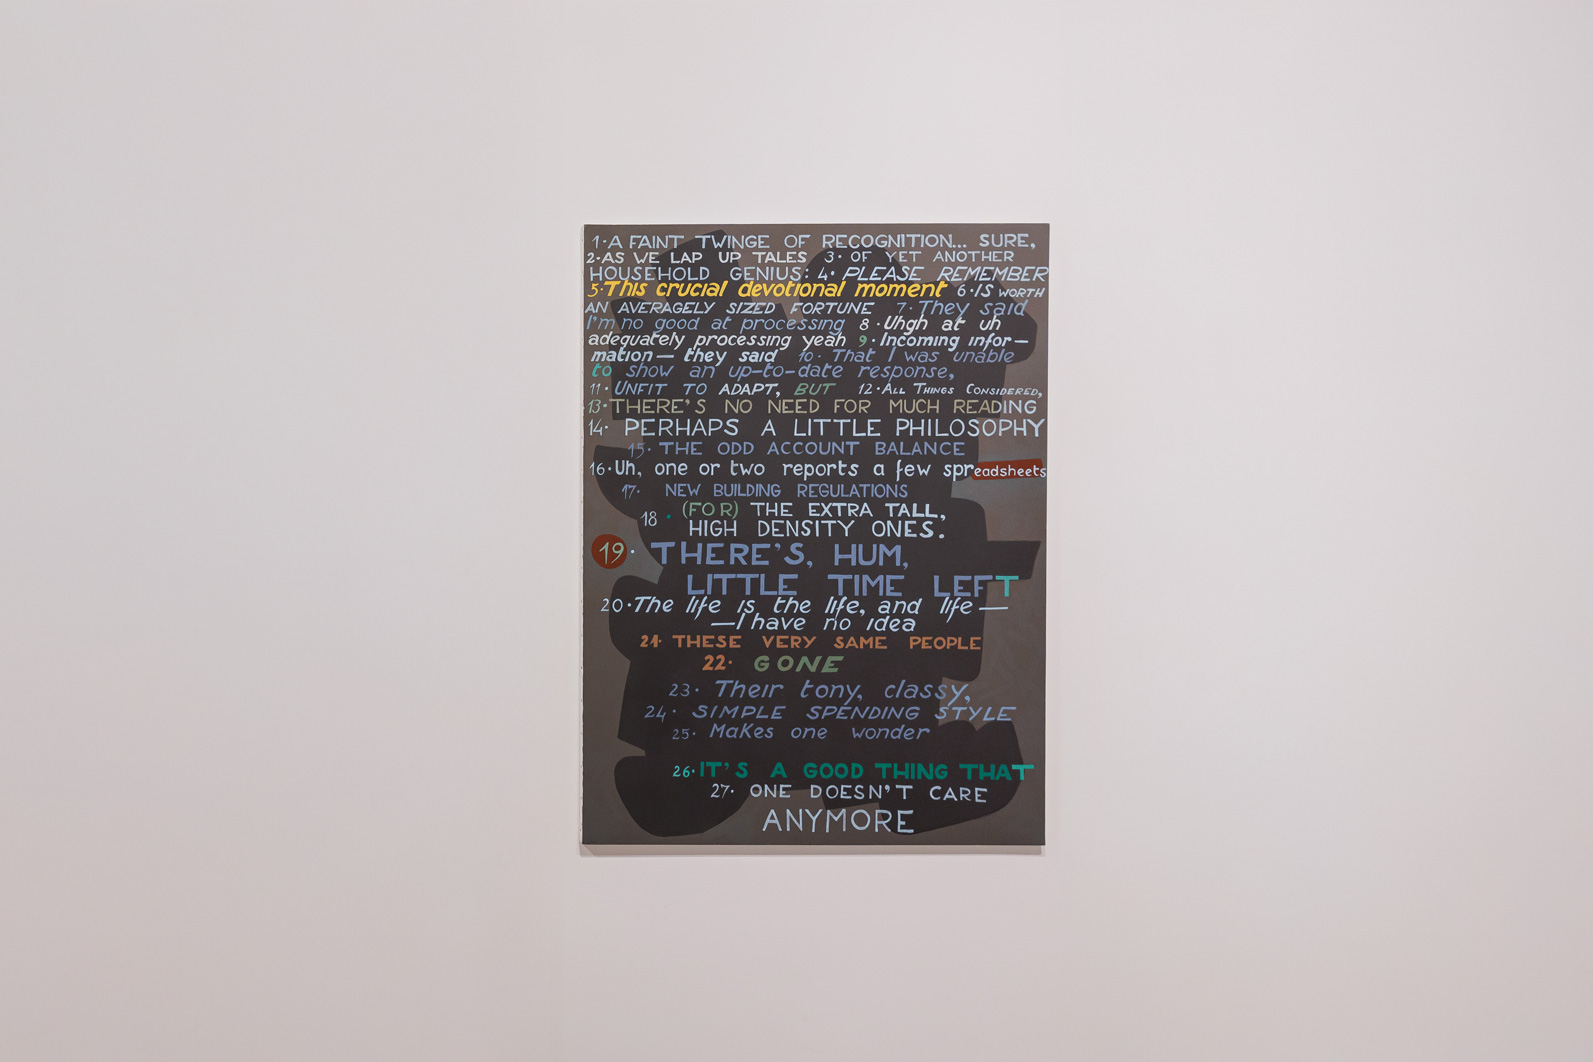 1·A FAINT TWINGE OF RECOGNITION... SURE,
2·AS WE LAP UP TALES 3· OF YET ANOTHER
HOUSEHOLD GENIUS: 4· PLEASE REMEMBER
5·This crucial devotional moment 6·IS WORTH
AN AVERAGELY SIZED FORTUNE 7· They said
I'm no good at processing 8·Uhgh at uh
adequately processing yeah 9·Incoming infor—
mation— they said 10· That I was unable
to show an up-to-date response,
11· UNFIT TO ADAPT, BUT 12·ALL THINGS CONSIDERED,
13·THERE'S NO NEED FOR MUCH READING
14· PERHAPS A LITTLE PHILOSOPHY
15· THE ODD ACCOUNT BALANCE
16·Uh, one or two reports a few spreadsheets
17· NEW BUILDING REGULATIONS
18· (FOR) THE EXTRA TALL,
HIGH DENSITY ONES.
19· THERE'S, HUM,
LITTLE TIME LEFT
20·The life is the life, and life—
—I have no idea
21· THESE VERY SAME PEOPLE
22· GONE
23· Their tony, classy,
24· SIMPLE SPENDING STYLE
25· Makes one wonder
26·IT'S A GOOD THING THAT
27· ONE DOESN'T CARE
ANYMORE